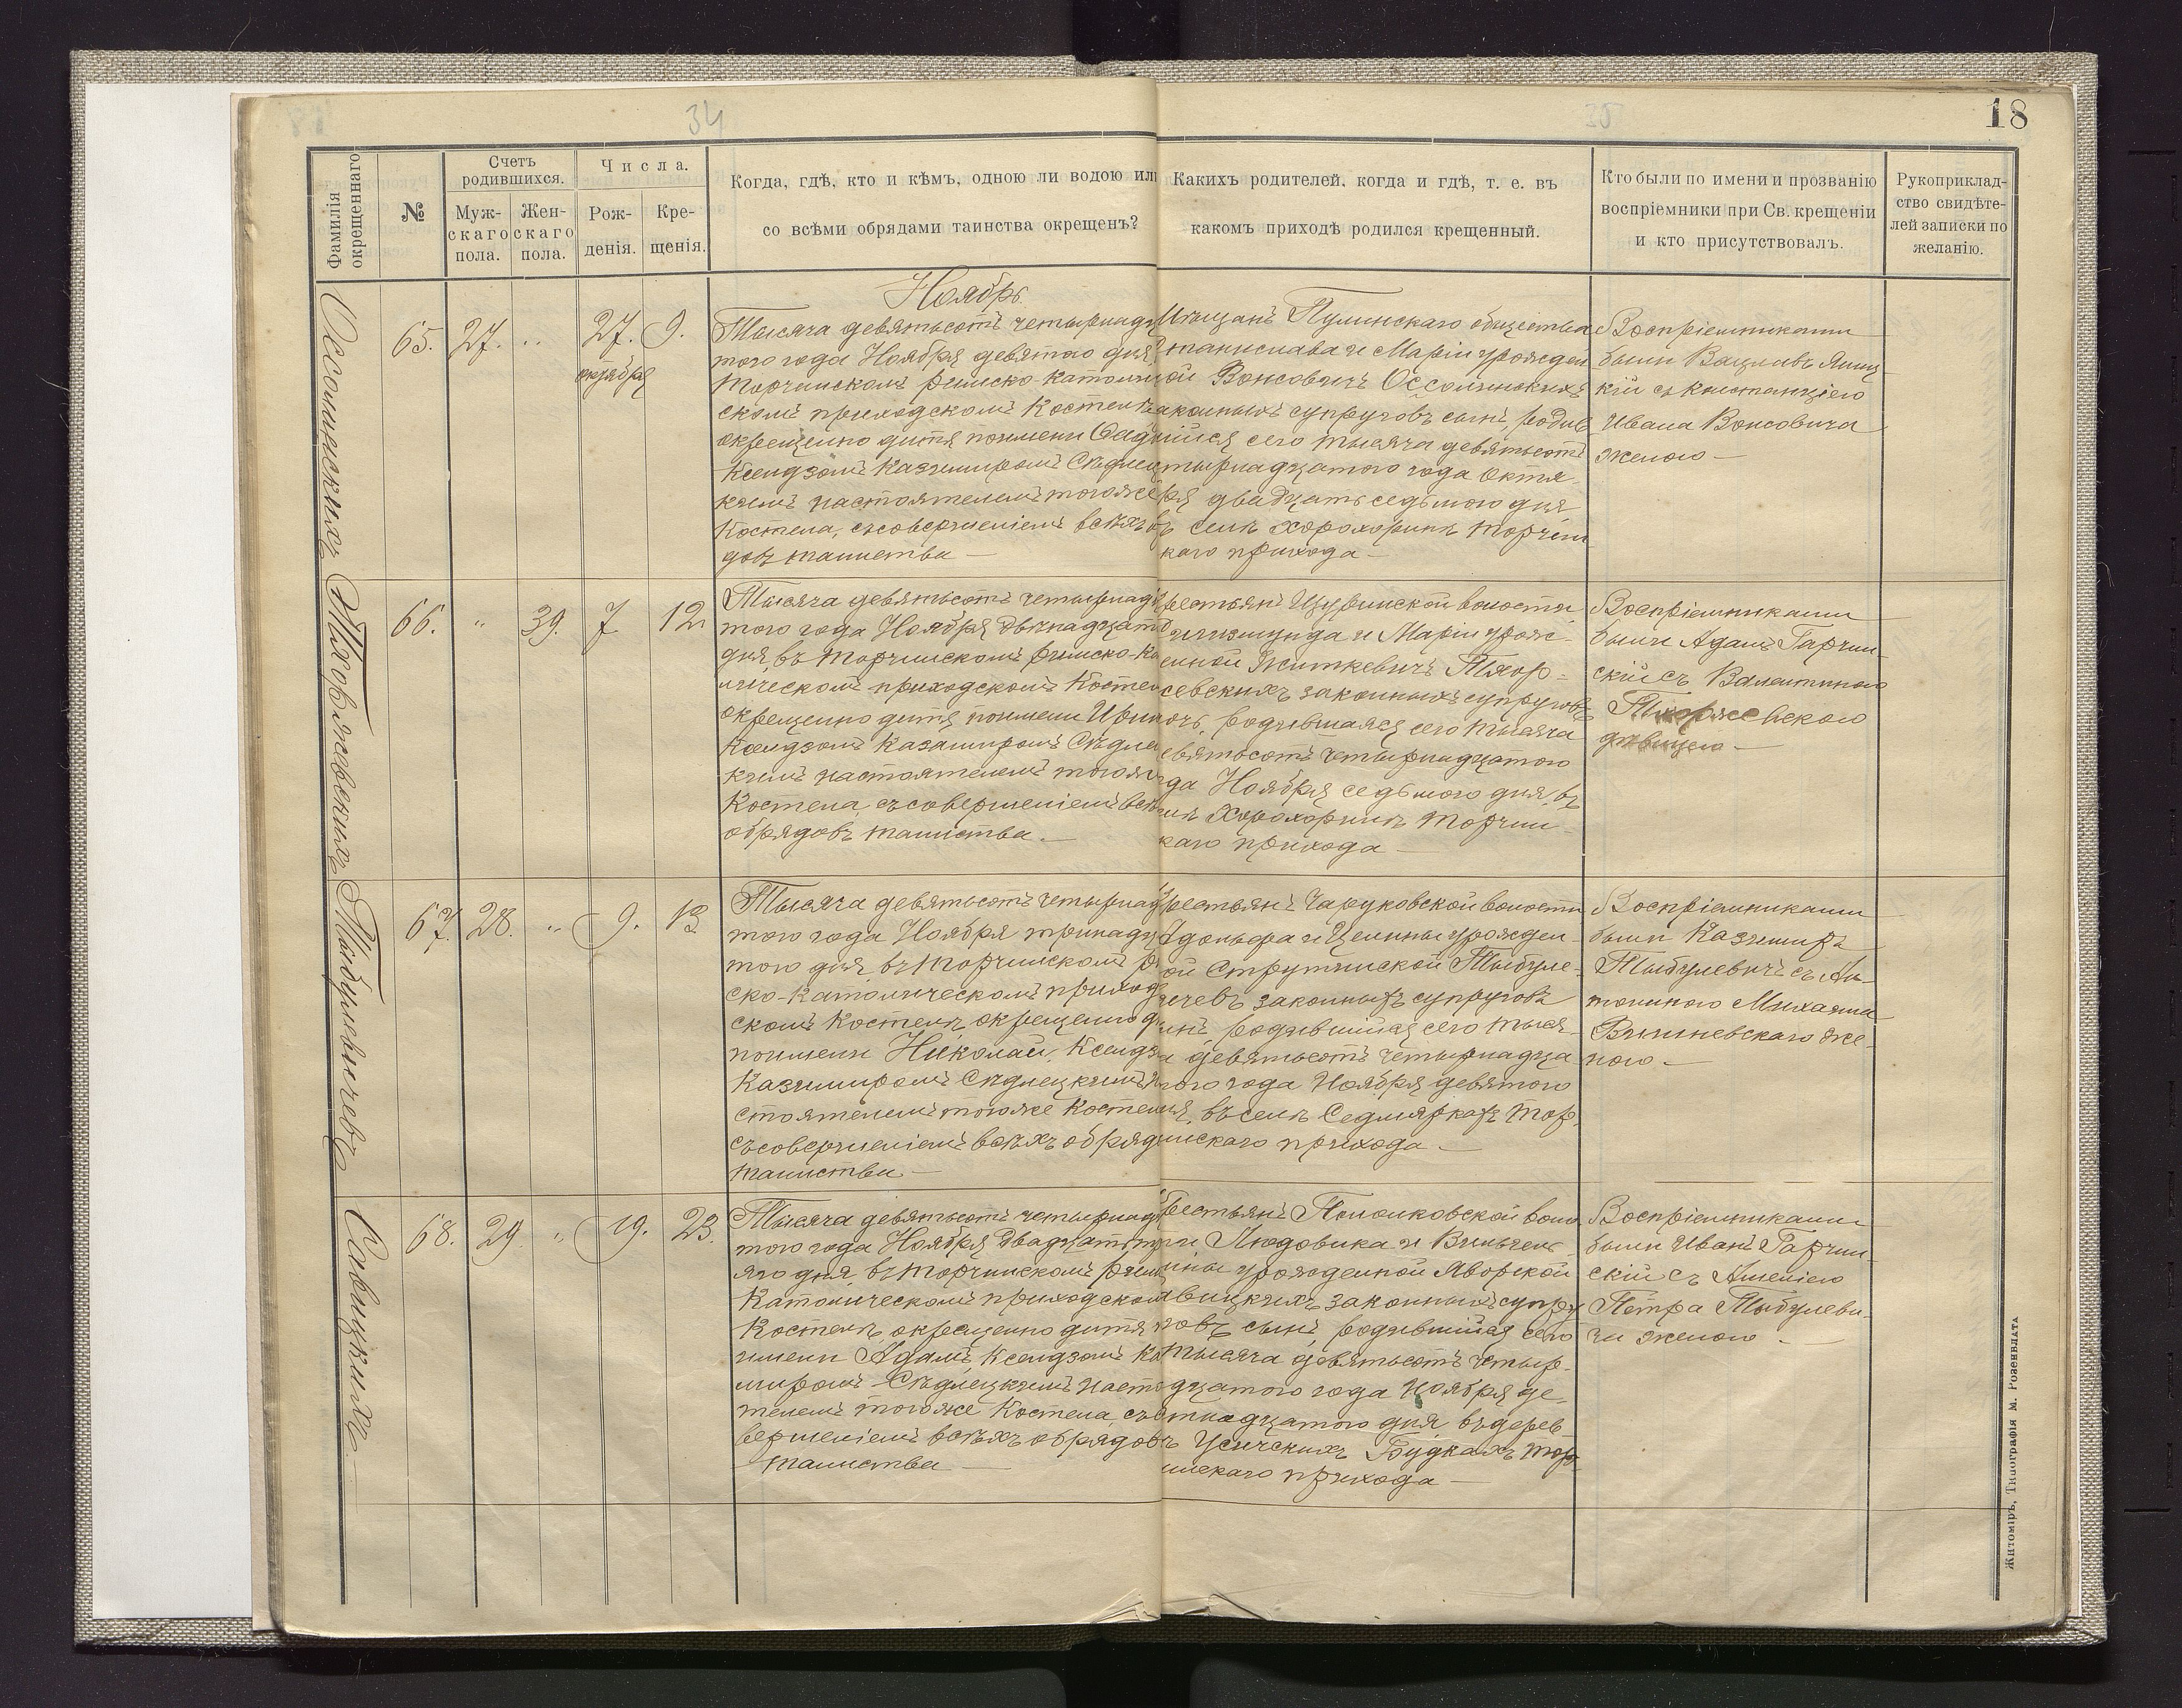 34
18
Фамилія окрещеннаго
№
Счетъ родившихся.
Мужскаго пола.
Женскаго пола.
Числа.
Рожденія.
Крещенія.
Когда, гдѣ, кто и кѣмъ, одною ли водою или
со всѣми обрядами таинства окрещенъ?
Какихъ родителей, когда и гдѣ, т. е. въ
какомъ приходѣ родился крещенный.
Кто были по имени и прозванію
воспріемники при Св. крещеніи
и кто присутствовалъ.
Рукоприклад-
ство свидѣте-
лей записки по
желанію.
Ноябрь.
Оссолинскихъ
65. 27. " 27. октября 9.
Тысяча девятьсотъ четырнадца
того года Ноября девятаго дня
Торчинскомъ римско-католич
скомъ приходскомъ Костелѣ
окрещено дитя поимени
Ксендзомъ Казимиромъ Сѣдлец
кимъ настоятелемъ тогоже
Костела, съ совершеніемъ всѣхъ
довъ таинства —
Мѣщанъ Пулинскаго общества
танислава и Маріи урожден
ой Вонсовичъ Оссолинскихъ
аконныхъ супруговъ сынъ, родив
шійся сего тысяча девятьсотъ
тырнадцатого года Октя-
ря двадцать седьмого дня
ъ селѣ Хорохоринѣ Торчин
каго прихода —
Воспріемниками
были Вацлавъ
кій съ Констанціею
Ивана Вонсовича
женою —
Тхоржевскихъ
66. " 39. 7 12
Тысяча девятьсотъ четырнад
того года Ноября двѣнадцат
дня, въ Торчинскомъ римско-ка
лическомъ приходскомъ Костел
окрещено дитя поимени Ирина
Ксендзомъ Казимиромъ Сѣдле
кимъ настоятелемъ тогоже
Костела, съ совершеніемъ всѣ
обрядовъ таинства. —
рестьянъ Щуринской волости
игизмунда и Маріи урож-
енной Житкевичъ Тхор-
жевскихъ законныхъ супруговъ
очь, родившаяся сего тысяча
евятьсотъ четырнадцатого
да Ноября седьмого дня, въ
елѣ Хорохоринѣ Торчин-
каго прихода —
Воспріемниками
были Адамъ Гарчин-
скій съ Валентиною
Тхоржевскою
дѣвицею —
Тыбулевичевъ
67. 28. " 9. 13.
Тысяча девятьсотъ четырнад
того года Ноября тринадца
того дня, въ Торчинскомъ р
ско-католическомъ приход
скомъ Костелѣ, окрещено д
поимени Николай, Ксендз
Казимиромъ Сѣдлецкимъ н
стоятелемъ тогоже Костел
съ совершеніемъ всѣхъ обряд
таинства —
рестьянъ Чаруковской волости
Адольфа и Целины урожден-
ой Струтинской Тыбуле-
ичевъ законныхъ супруговъ
ынъ, родившійся сего тыся-
а девятьсотъ четырнадца
того года Ноября девятого
ня, въ селѣ Седмяркахъ Тор-
инскаго прихода —
Воспріемниками
были Казимиръ
Тыбулевичъ съ Ан-
тониною Михаила
Вишневскаго же-
ною —
Савицкихъ
68. 29. " 19. 23.
Тысяча девятьсотъ четырнад
того года Ноября двадцать тр
яго дня, въ Торчинскомъ рим
Католическомъ приходском
Костелѣ, окрещено дитя
имени Адамъ, Ксендзомъ Ка
миромъ Сѣдлецкимъ насто
телемъ тогоже Костела, съ со
вершеніемъ всѣхъ обрядовъ
таинства —
рестьянъ Полонковской воло
ти Людовика и Вильгель-
мины урожденной Яворской
авицкихъ законныхъ супру
говъ сынъ, родившійся сего
тысяча девятьсотъ четыр-
дцатого года Ноября де-
тнадцатого дня, въ дерев
ѣ Усичскихъ Будкахъ Тор-
инскаго прихода —
Воспріемниками
были Иванъ Гарчин-
скій съ Анеліею
Петра Тыбулеви-
ча женою —
Житоміръ, Типографія М. Розенблата